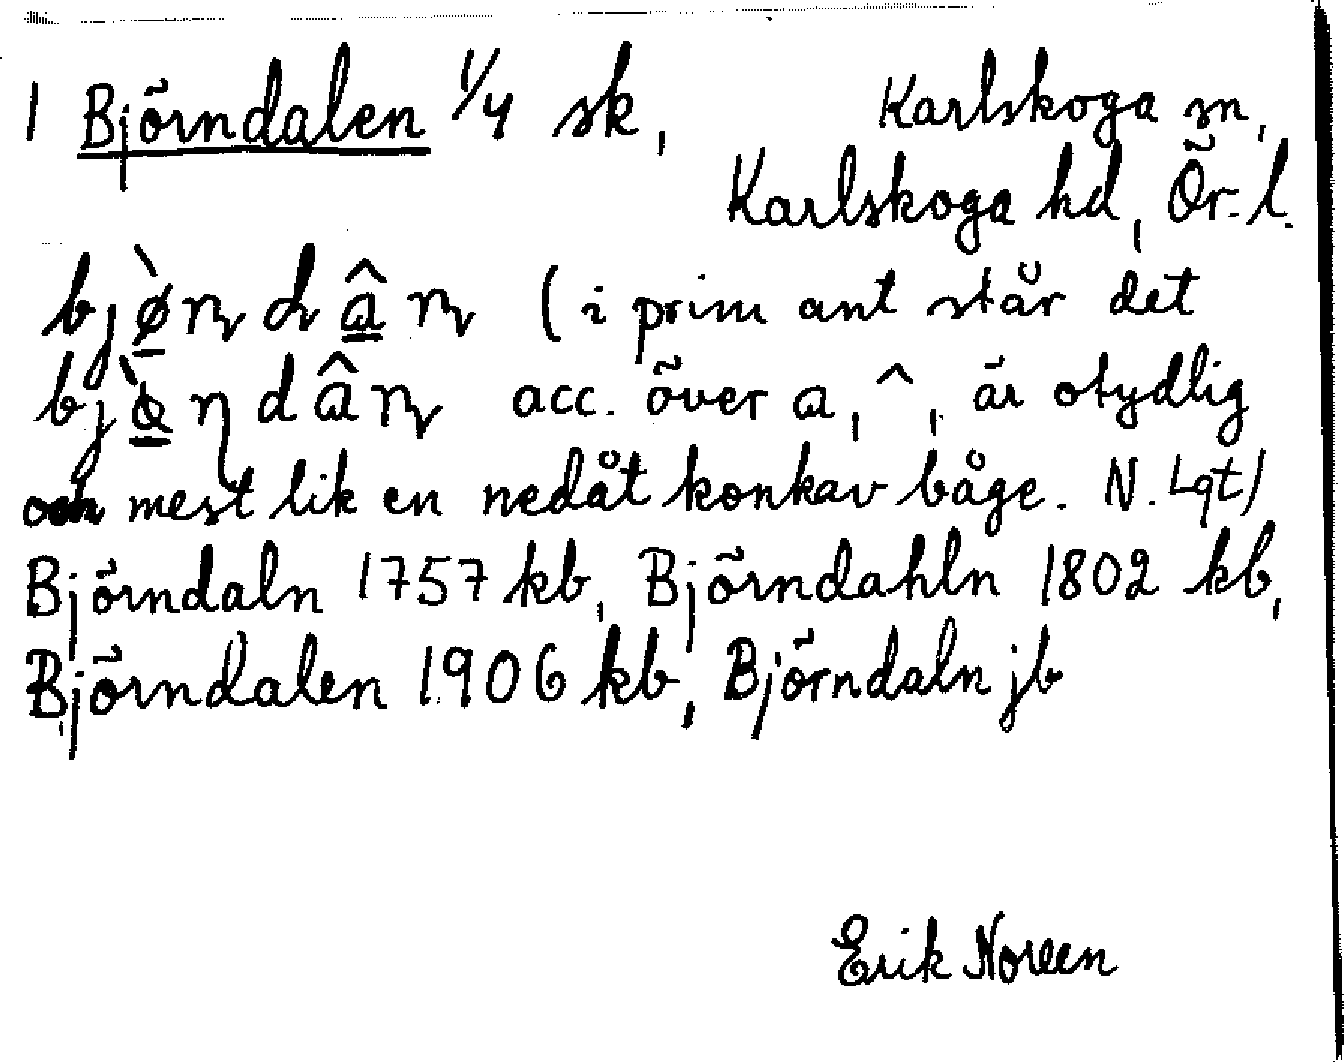 1 Björndalen 1/4 sk, Karlskoga sn,
Karlskoga hd, Ör. l.
bjø̲̀ɳdâ̲ɳ (i prim ant står det
bjø̲̀ɳdâɳ acc. över a, ^, är otydlig
och mest lik en nedåt konkav båge. N. Lqt)
Björndaln 1757 kb, Björndahln 1802 kb,
Björndalen 1906 kb, Björndaln jb
Erik Noreen